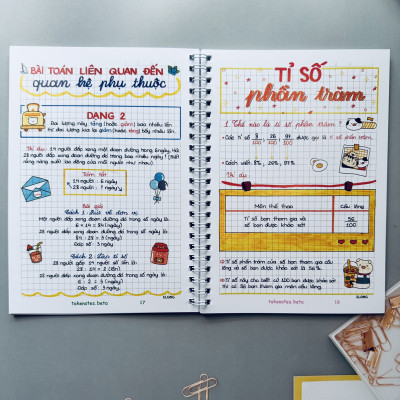 BÀI TOÁN LIÊN QUAN ĐẾN
quan hệ phụ thuộc
DẠNG 2
Đại lượng này tăng (hoặc giảm) bao nhiêu lần
thì đại lượng kia lại giảm (hoặc tăng) bấy nhiêu lần.
Ví dụ: 14 người đắp xong một đoạn đường trong 6 ngày. Hỏi
28 người đắp xong đoạn đường đó trong bao nhiêu ngày? (Biết
năng năng suất lao động của mỗi người như nhau)
Tóm tắt:
14 người : 6 ngày
28 người : ? ngày
Bài giải
Cách 1: Rút về đơn vị
Một người đắp xong đoạn đường đó trong số ngày là:
6 × 14 = 84 (ngày)
28 người đắp xong đoạn đường đó trong số ngày là:
84 : 28 = 3 (ngày)
Đáp số: 3 ngày.
Cách 2: Lập tỉ số
28 người gấp 14 người số lần là:
28 : 14 = 2 (lần)
28 người đắp xong đoạn đường đó trong số ngày là:
6 : 2 = 3 (ngày)
Đáp số: 3 ngày.
takenotes.beta
17
TỈ SỐ
phần trăm
1. Thế nào là tỉ số phần trăm?
Các tỉ số 8/100; 26/100; 97/100 được gọi là tỉ số phần trăm.
Cách viết: 8%, 26%, 97%.
Ví dụ:
Môn thể thao Cầu lông
Tỉ số bạn tham gia và
số bạn được khảo sát 56/100
Tỉ số phần trăm của số bạn tham gia cầu
lông và số bạn được khảo sát là 56%.
Tỉ số này cho biết cứ 100 bạn được khảo sát
thì có 56 bạn tham gia môn cầu lông.
takenotes.beta
18